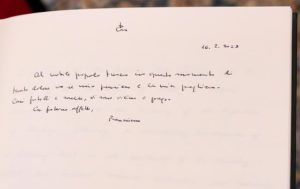 16. 2. 2023
Al nobile popolo turco in questo momento di
tanto dolore va il mio pensiero e la mia preghiera.
Cari fratelli e sorelle, vi sono vicino e prego.
fraterno affetto,
Francesco